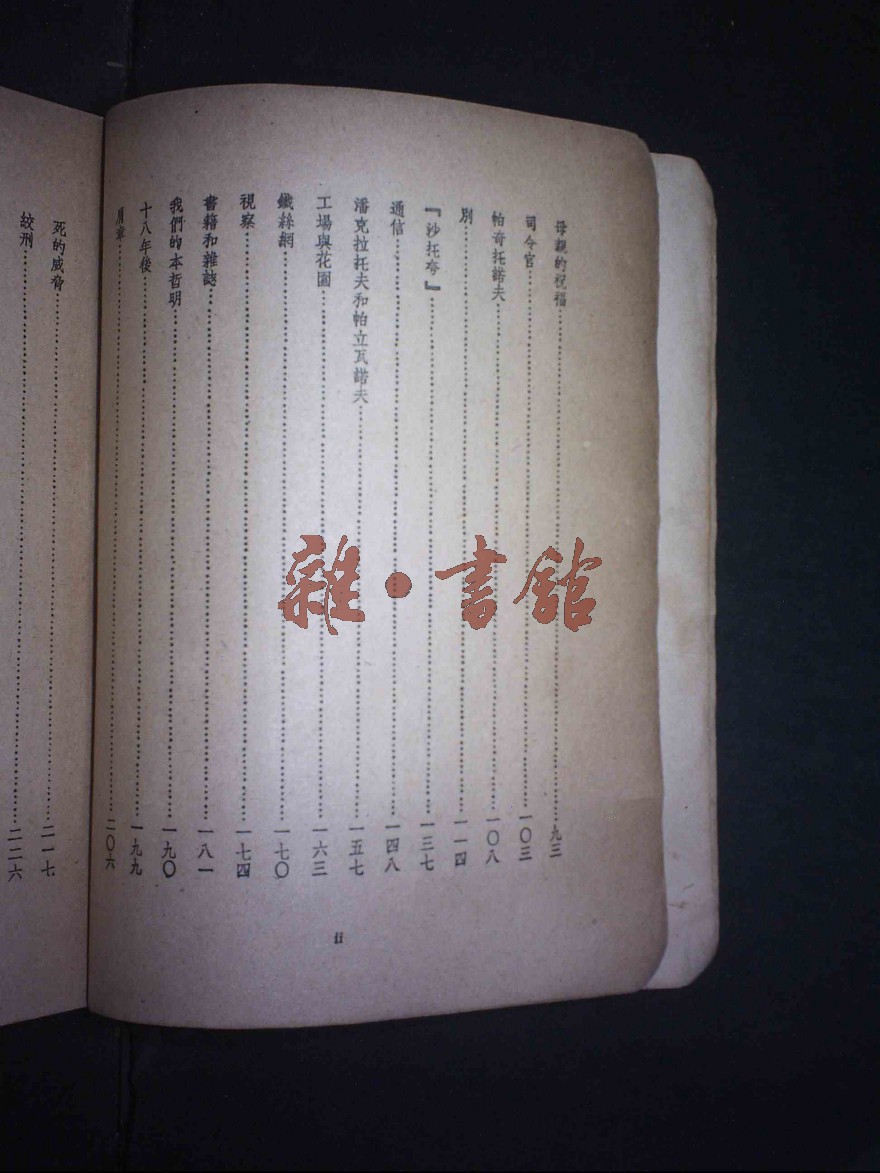 母親的祝福……九三
司令官……一〇三
帕奇托諾夫……一〇八
別……一一四
『沙托夸』……一三七
通信……一四八
潘克拉托夫和帕立瓦諾夫……一五七
工場與花園……一六三
鐵絲網……一七〇
視察……一七四
書籍和雜誌……一八一
我們的本哲明……一九〇
十八年後……一九九
肩章……二〇六
ii
死的威脅……二一七
絞刑……二二六
雜·書館